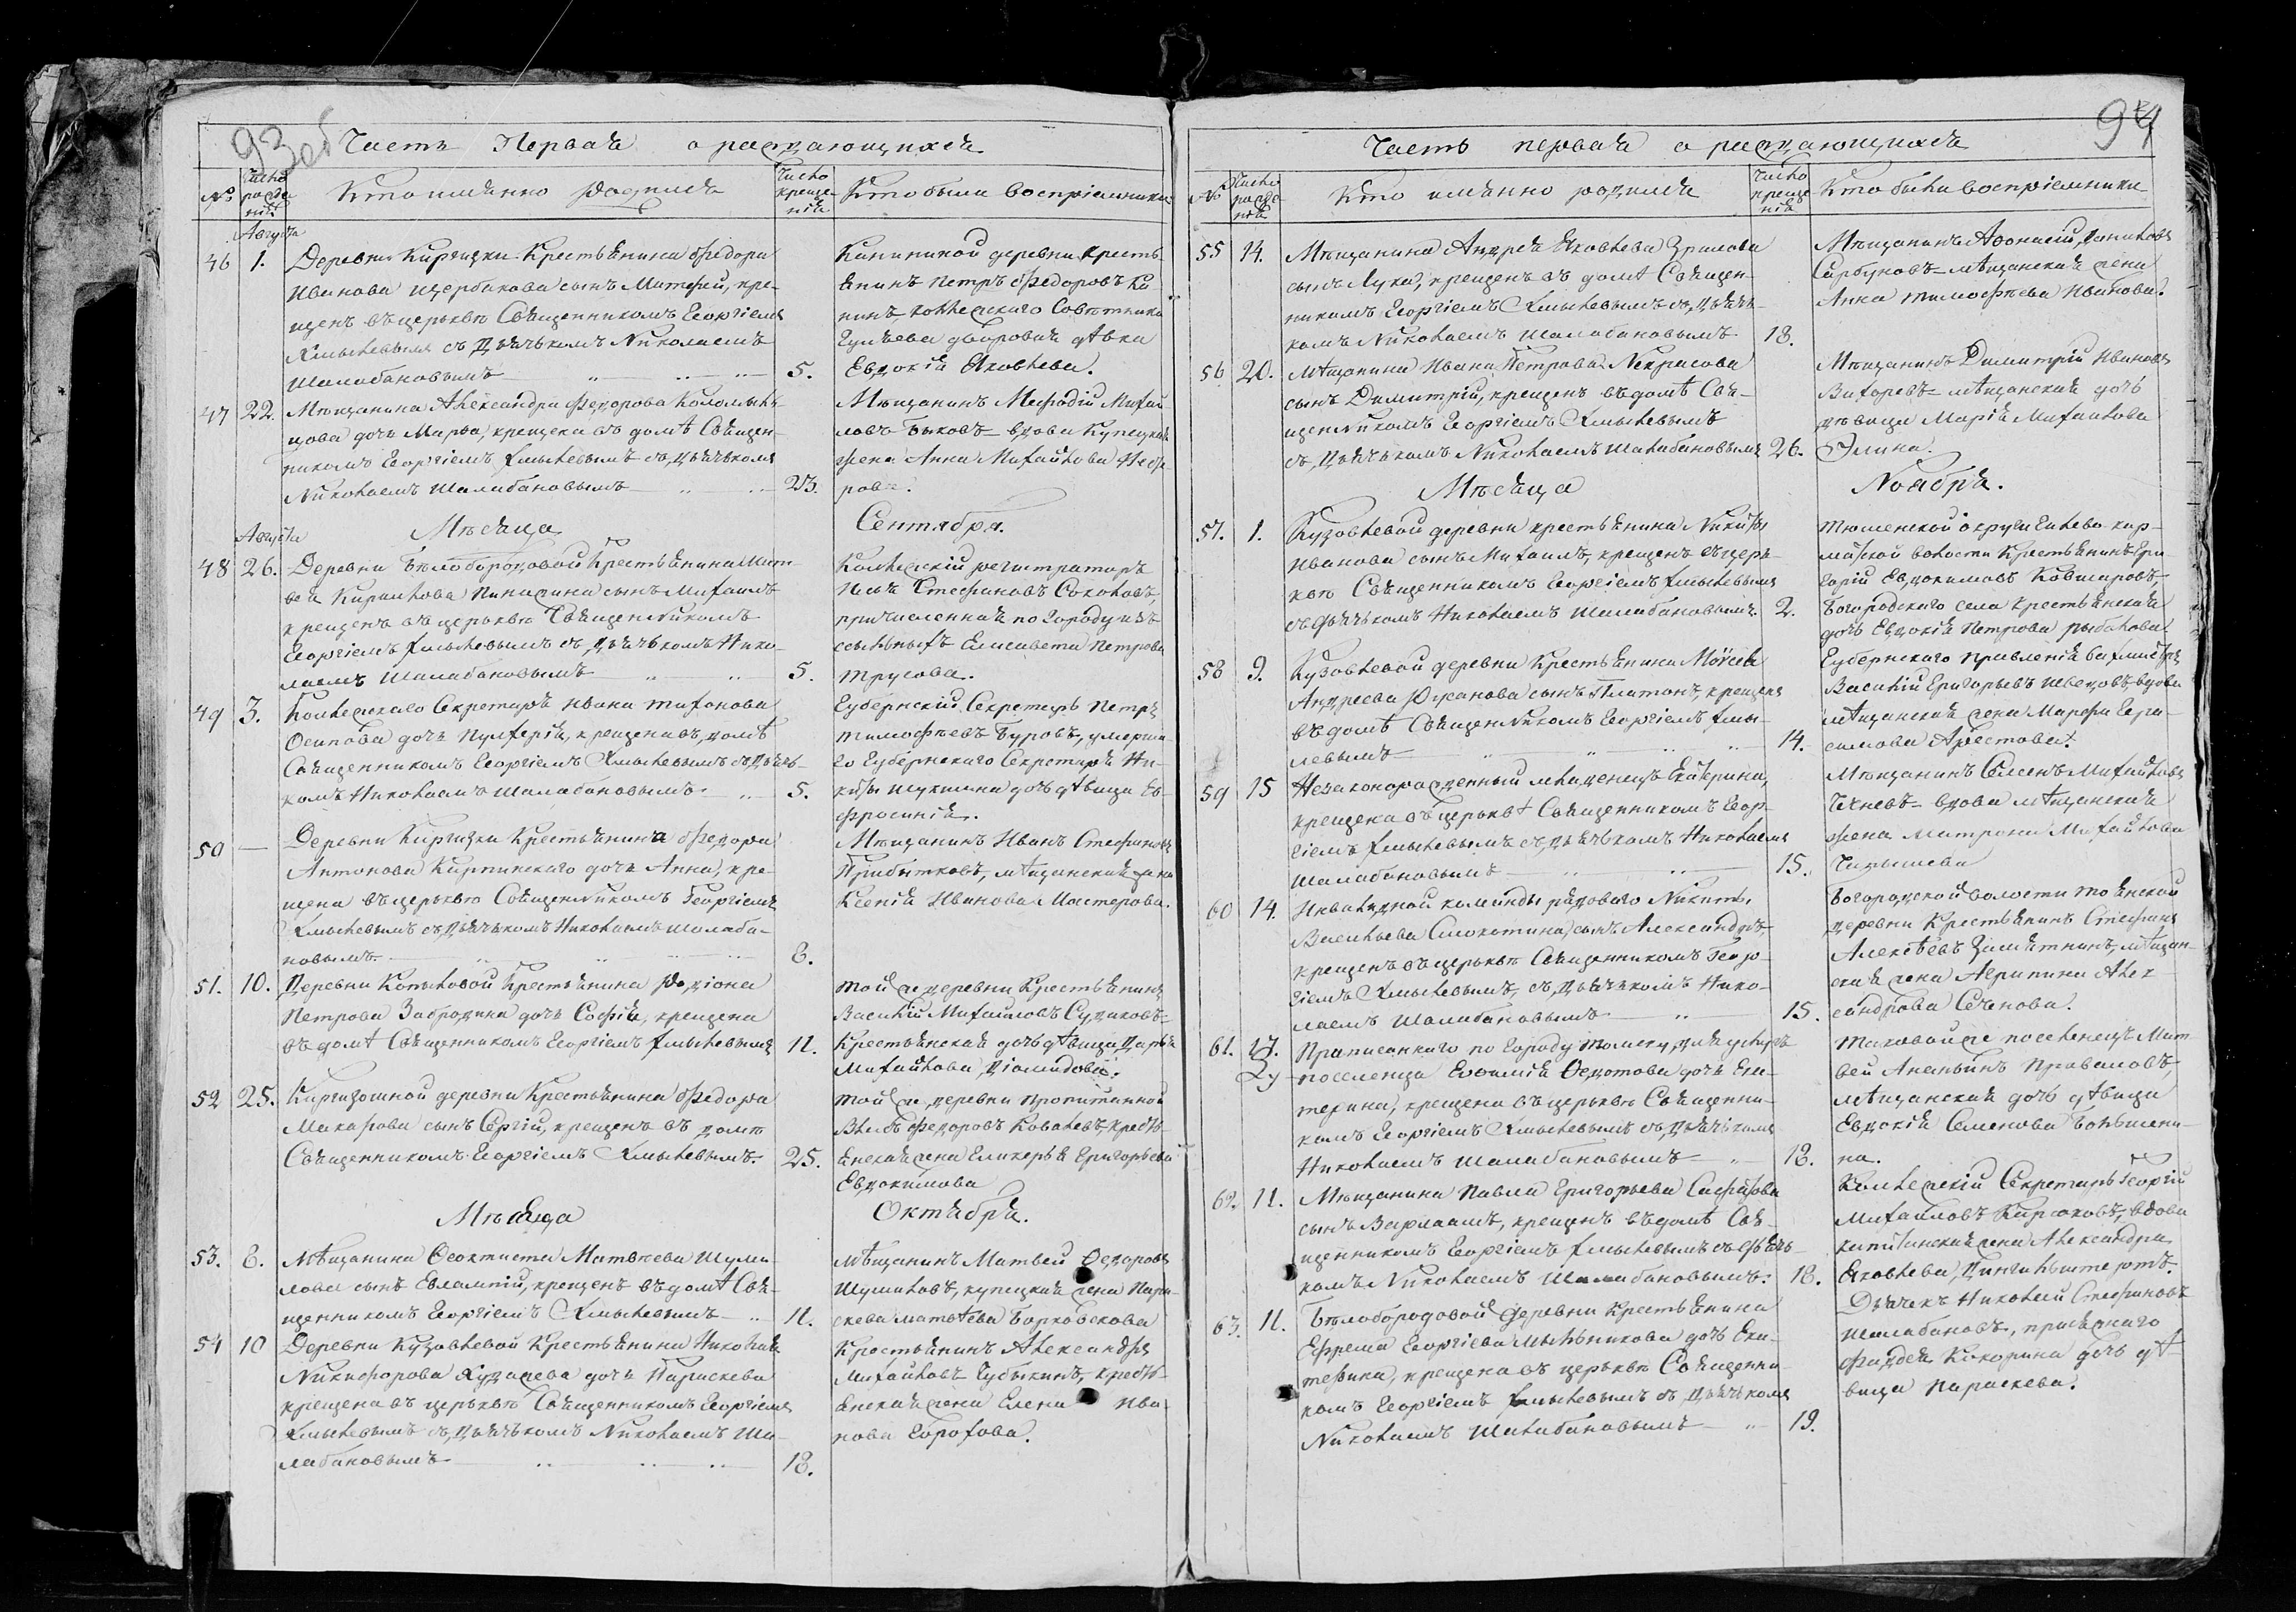 93 об
Часть Первая о раждающихся
№
Число рожде ния
Кто именно родился
Число креще ния
Кто были восприемники
Августа
46 1. Деревни Киргизки Крестьянина Федора
Иванова Щербакова сынъ Матфей, кре-
щенъ въ церькви Священникомъ Георгіемъ
Хмылевымъ съ Дьячькомъ Николаемъ
Шалабановымъ 5.
деревни Кресть-
янинъ Петръ Федоровъ Ка
нинъ Коллежскаго Совѣтника
дворовая дѣвка
Евдокія Яковлева.
47 22. Мѣщанина Александра Федорова
цова дочь Марѳа, крещена въ домѣ Священ-
никомъ Георгіемъ Хмылевымъ съ Дьячькомъ
Николаемъ Шалабановымъ 23.
Мѣщанинъ Меѳодій Михай
ловъ Быковъ вдова Купецкая
жена Анна Михайлова
рова.
Августа Мѣсяца Сентября.
48 26. Деревни Бѣлобородовой Крестьянина Мат-
вея Кирилова сынъ Михаилъ
крещенъ въ церькви Священникомъ
Георгіемъ Хмылевымъ съ Дьячькомъ Нико-
лаемъ Шалабановымъ 5.
Коллежскій регистраторъ
Илья Стефановъ Соколовъ,
причисленная по городу изъ
ссыльныхъ Елисавета Петрова
Трусова.
49 3. Коллежскаго Секретаря Ивана Тихонова
Осипова дочь Пулхерія, крещена въ домѣ
Священникомъ Георгіемъ Хмылевымъ съ Дьячь-
комъ Николаемъ Шалабановымъ 5.
Губернскій Секретарь Петръ
Тимофѣевъ Буровъ, умерша-
го Губернскаго Секретаря Ни-
киты Шукшина дочь дѣвица Ев-
фросинія.
50 — Деревни Киргизки Крестьянина Федора
Антонова Киргинскаго дочь Анна, кре-
щена въ церькви Священникомъ Георгіемъ
Хмылевымъ съ Дьячькомъ Николаемъ Шалаба-
новымъ 6.
Мѣщанинъ Иванъ Стефановъ
Прибытковъ, мѣщанская жена
Ксенія Иванова Мастерова.
51. 10. Деревни Копыловой Крестьянина Родіона
Петрова Забродина дочь Софія, крещена
въ домѣ Священникомъ Георгіемъ Хмылевымъ 11.
Той же деревни Крестьянинъ
Василій Михайловъ Судаковъ
Крестьянская дочь дѣвица Дарья
Михайлова Діомидова.
52 25. Киргизошной деревни Крестьянина Федора
Макарова сынъ Сергій, крещенъ въ домѣ
Священникомъ Георгіемъ Хмылевымъ 25.
Той же деревни пропитанной
Федоровъ Ковалевъ, кресть-
янская жена Гликерья Григорьева
Евдокимова
Мѣсяца Октября.
53. 6. Мѣщанина Ѳеоктиста Матвѣева Шуми-
лова сынъ Евлампій, крещенъ въ домѣ Свя-
щенникомъ Георгіемъ Хмылевымъ 11.
Мѣщанинъ Матвей Ѳедоровъ
Шумиловъ, купецкая жена Пара-
скева Матвѣева Борковскова
54 10 Деревни Кузовлевой Крестьянина Николая
Никифорова дочь Параскева
крещена въ церькви Священникомъ Георгіемъ
Хмылевымъ съ Дьячькомъ Николаемъ Ша-
лабановымъ 18.
Крестьянинъ Александръ
Михайловъ Губыкинъ, кресть-
янская жена Елена Ива
нова Горохова.
94
Часть первая о раждающихся
№
Число рожде ния
Кто именно родился
Число креще ния
Кто были восприемники
55 14. Мѣщанина Андрея Яковлева
сынъ Лука, крещенъ въ домѣ Священ-
никомъ Георгіемъ Хмылевымъ съ Дьячь-
комъ Николаемъ Шалабановымъ 18.
Мѣщанинъ Аѳонасій Даниловъ
Сарбуновъ мѣщанская жена
Анна Тимофѣева Иванова.
56 20. Мѣщанина Ивана Петрова Некрасова
сынъ Димитрій, крещенъ въ домѣ Свя-
щенникомъ Георгіемъ Хмылевымъ
съ Дьячькомъ Николаемъ Шалабановымъ 26.
Мѣщанинъ Димитрій Ивановъ
Вихоревъ мѣщанская дочь
дѣвица Марія Михайлова
Элина.
Мѣсяца Ноября.
57. 1. Кузовлевой деревни крестьянина Никиты
Иванова сынъ Михаилъ, крещенъ въ церь-
кви Священникомъ Георгіемъ Хмылевымъ
съ дьячькомъ Николаемъ Шалабановымъ. 2.
Тюменской округи кар-
волости Крестьянинъ Гри-
горій Евдокимовъ
Богородскаго села крестьянская
дочь Евдокія Петрова Рыбакова
58 9. Кузовлевой деревни Крестьянина Моисея
Андреева Рожанова сынъ Платонъ, крещенъ
въ домѣ Священникомъ Георгіемъ Хмы-
левымъ 14.
Губернскаго Правленія вахмистръ
Василій Григорьевъ Шведовъ, вдова
мѣщанская жена Марфа Гера-
симова Арестова.
59 15 Незаконорожденный младенецъ Екатерина,
крещена въ церьквѣ Священникомъ Геор-
гіемъ Хмылевымъ съ дьячькомъ Николаемъ
Шалабановымъ 15.
Мѣщанинъ Семенъ Михайловъ
вдова мѣщанская
жена Матрона Михайлова
60 14. Инвалидной команды рядоваго Никиты
Васильева Слокотина сынъ Александръ,
крещенъ въ церькви Священникомъ Геор-
гіемъ Хмылевымъ, съ Дьячькомъ Нико-
лаемъ Шалабановымъ 15.
Богородской волости Тоянской
деревни Крестьянинъ Стефанъ
Алексѣевъ мѣщан-
ская жена Агрипина Алек-
сандрова Сѣченова.
61. 17. Приписаннаго по городу Томску
поселенца Евѳимія Ѳедотова дочь Ека-
терина, крещена въ церькви Священни-
комъ Георгіемъ Хмылевымъ съ Дьячькомъ
Николаемъ Шалабановымъ 18.
Таковой же поселенецъ Мат-
вей Ананьинъ Проваловъ,
мѣщанская дочь дѣвица
Евдокія Семенова Большени-
на.
62. 11. Мѣщанина Павла Григорьева
сынъ Варлаамъ, крещенъ въ домѣ Свя-
щенникомъ Георгіемъ Хмылевымъ съ дьячь-
комъ Николаемъ Шалабановымъ. 18.
Коллежскій Секретарь Георгій
Михайловъ вдова
капитанская жена Александра
Яковлева
63. 11. Бѣлобородовой деревни Крестьянина
Ефрема Георгіева Мыльникова дочь Ека-
терина, крещена въ церькви Священни-
комъ Георгіемъ Хмылевымъ съ Дьячькомъ
Николаемъ Шалабановымъ 19.
Дьячекъ Николай Стефановъ
Шалабановъ, присяжнаго
Кокорина дочь дѣ-
вица Параскева.